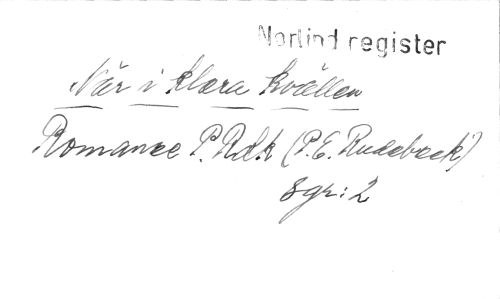 Norlind register
När i klara kvällen
Romance P. Rdk (P. E. Rudebeck)
8gr: 2